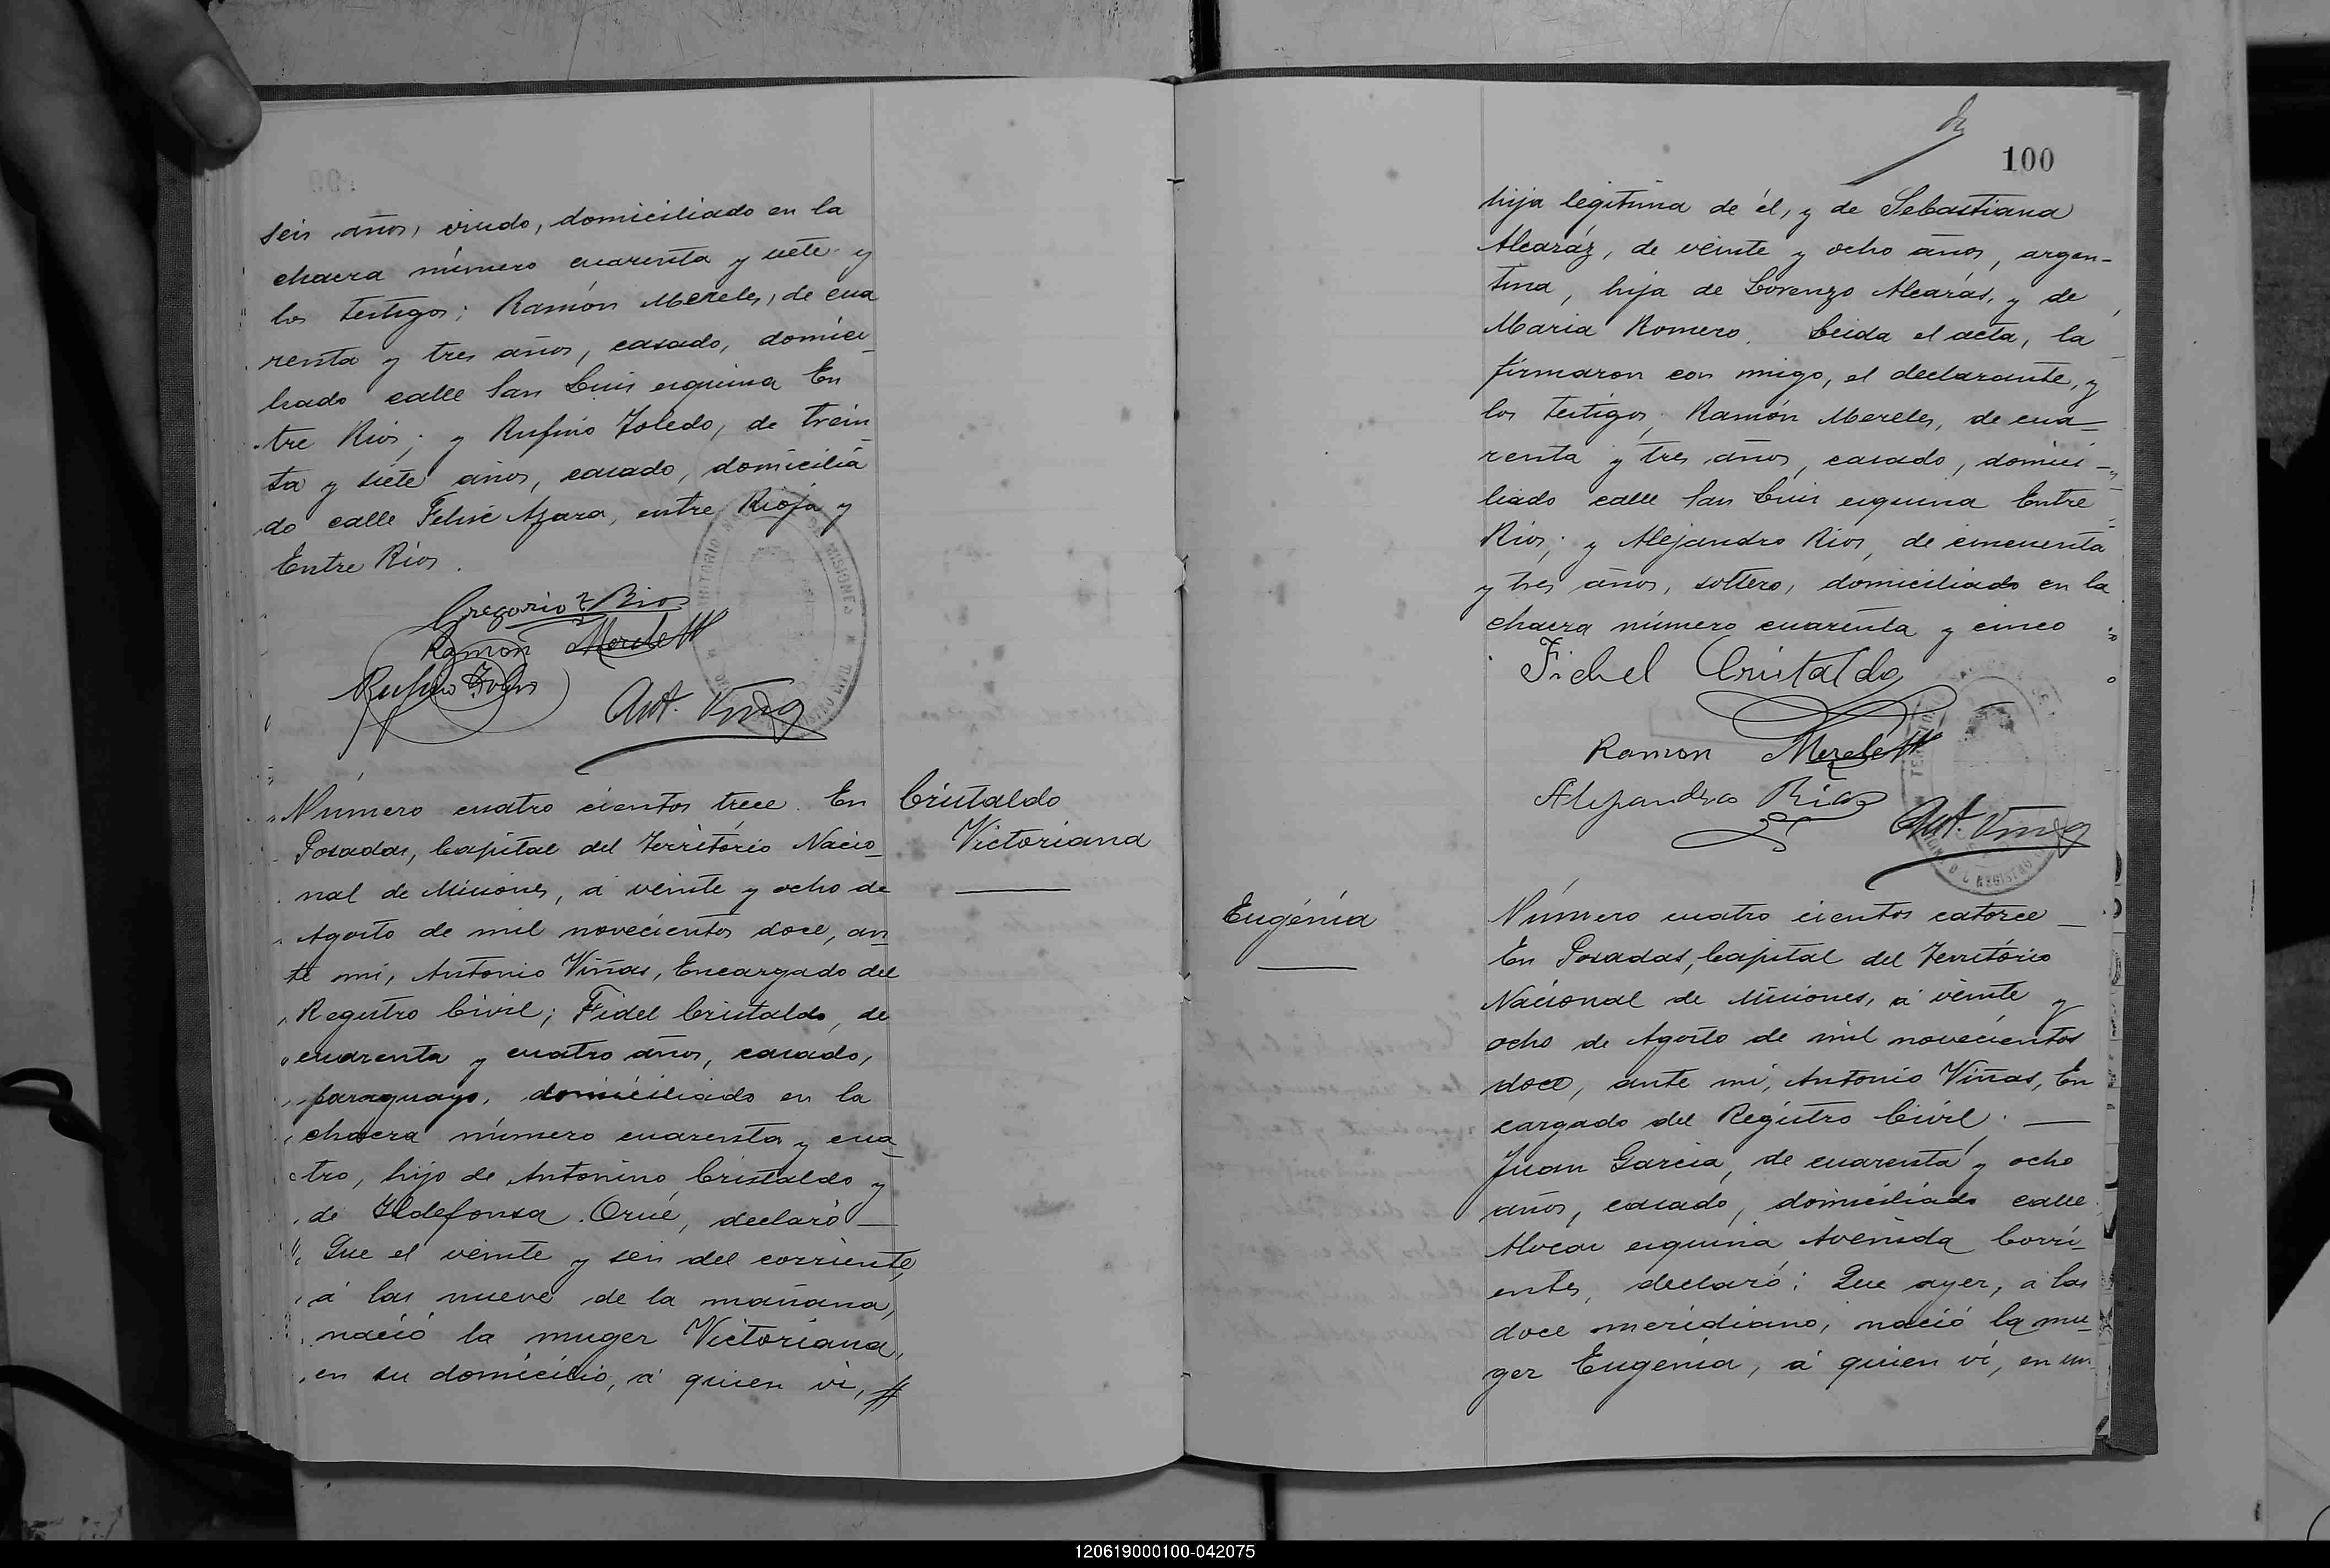 seis años, viudo, domiciliado en la
chacra número cuarenta y siete y
los testigos; Ramón Mereles, de cua
renta y tres años, casado, domici_
liado calle San Luis esquina En
tre Rios; y Rufino Toledo, de trein_
ta y siete años, casado, domicilia
do calle Felix Azara, entre Rioja y
Entre Rios.
Gregorio Rios
Ramon Mereles
Rufino Toledo
Ant. Viñas
Número cuatro cientos trece. En
Posadas, Capital del Territorio Nacio_
nal de Misiones, á veinte y ocho de
Agosto de mil novecientos doce, an_
te mi, Antonio Viñas, Encargado del
Registro Civil; Fidel Cristaldo, de
cuarenta y cuatro años, casado,
paraguayo, domiciliado en la
chacra número cuarenta y cua_
tro, hijo de Antonino Cristaldo y
de Ildefonsa Orué, declaró _
Que el veinte y seis del corriente,
á las nueve de la mañana,
nació la muger Victoriana,
en su domicilio, á quien vi, #
Cristaldo
Victoriana
100
hija legítima de él, y de Sebastiana
Alcaráz, de veinte y ocho años, argen-
tina, hija de Lorenzo Alcarás, y de
Maria Romero. Leida el acta, la
firmaron con migo, el declarante, y
los testigos, Ramón Mereles, de cua_
renta y tres años, casado, domici-
liado calle San Luis esquina Entre
Rios; y Alejandro Rios, de cincuenta
y tres años, soltero, domiciliado en la
chacra número cuarenta y cinco
Fidel Cristaldo
Ramon Mereles
Alejandro Rios
Ant. Viñas
Eugénia
Número cuatro cientos catorce _
En Posadas, Capital del Território
Nacional de Misiones, á veinte y
ocho de Agosto de mil novecientos
doce, ante mi, Antonio Viñas, En
cargado del Registro Civil. _
Juan Garcia, de cuarenta y ocho
años, casado, domiciliado calle
Alvear esquina Avenida Corri_
entes, declaró: Que ayer, á las
doce meridiano, nació la mu_
ger Eugenia, á quien vi, en un
120619000100-042075